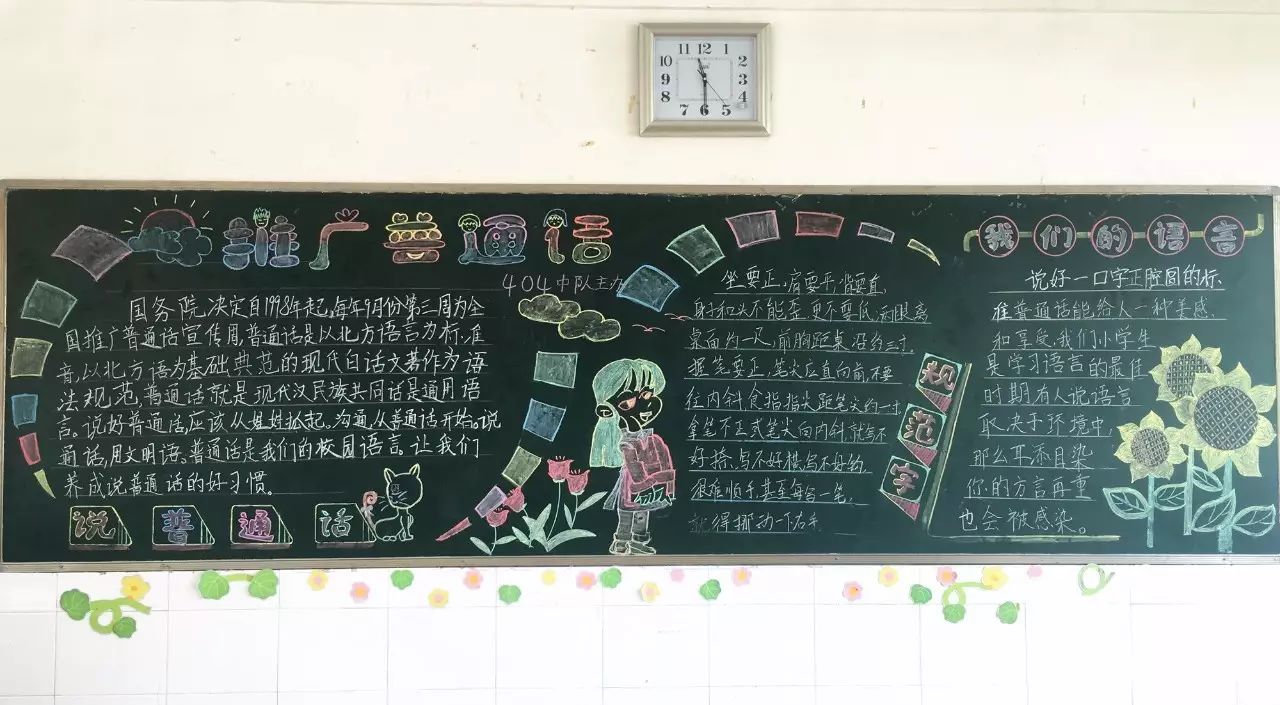 11 12 1
10 2
9 3
8 4
7 6 5
推广普通话
404中队主办
国务院决定自1998年起,每年9月份第三周为全
国推广普通话宣传周,普通话是以北方语言为标准
音,以北方语为基础典范的现代白话文著作为语
法规范,普通话就是现代汉民族共同话是通用语
言。说好普通话,应该从娃娃抓起。沟通,从普通话开始。说
通话,用文明语。普通话是我们的校园语言,让我们
养成说普通话的好习惯。
说普通话
坐要正,肩要平,背要直,
身子和头不能歪,更不要低,两眼离
桌面约一尺,前胸距桌沿约三寸,
握笔要正,笔尖应直向前,不要
往内斜,食指指尖距笔尖约一寸
拿笔不正式笔尖向内斜,就写不
好捺,写不好横,写不好钩,
很难顺手,甚至每写一笔,
就得挪动一下右手
规范字
我们的语言
说好一口字正腔圆的标
准普通话能给人一种美感
和享受,我们小学生
是学习语言的最佳
时期,有人说语言
取决于环境中,
那么耳添目染
你的方言再重
也会被感染。